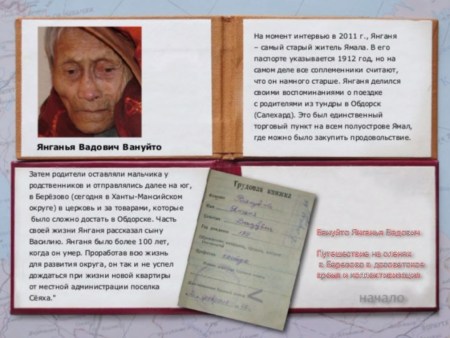 На момент интервью в 2011 г., Янганя
– самый старый житель Ямала. В его
паспорте указывается 1912 год, но на
самом деле все соплеменники считают,
что он намного старше. Янганя делился
своими воспоминаниями о поездке
с родителями из тундры в Обдорск
(Салехард). Это был единственный
торговый пункт на всем полуострове Ямал,
где можно было закупить продовольствие.
Янганья Вадович Вануйто
Затем родители оставляли мальчика у
родственников и отправлялись далее на юг,
в Берёзово (сегодня в Ханты-Мансийском
округе) в церковь и за товарами, которые
было сложно достать в Обдорске. Часть
своей жизни Янганя рассказал сыну
Василию. Янганя было более 100 лет,
когда он умер. Проработав всю жизнь
для развития округа, он так и не успел
дождаться при жизни новой квартиры
от местной администрации поселка
Сёяха."
Трудовая книжка
Вануйто Янганья Вадович
Путешествие на оленях
в Берёзово в досоветское
время и коллективизация
начало